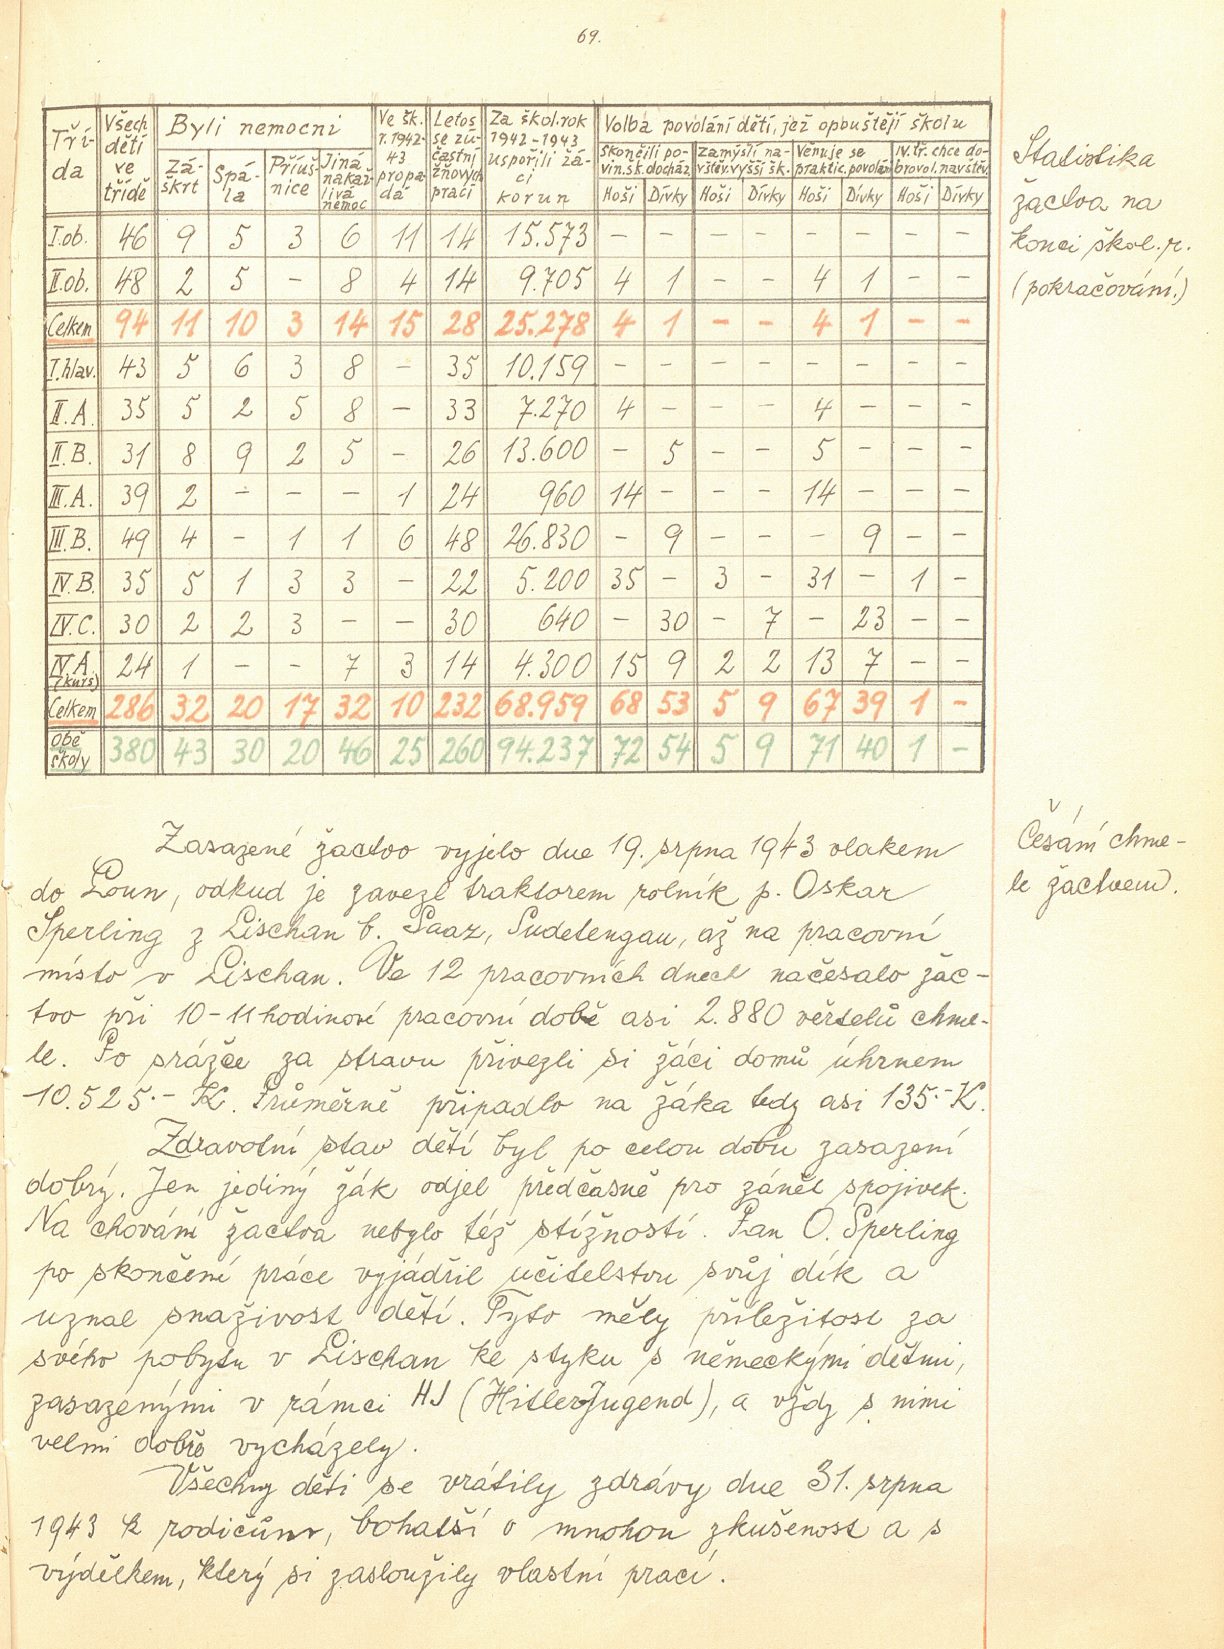 69.
Tří-da | Všech dětí ve třídě | Byli nemocni | Ve šk. r. 1942-43 propadá | Letos se zúčastní žňových prací | Za škol. rok 1942-1943 uspořili žáci korun | Volba povolání dětí, jež opouštějí školu
Záškrt | Spála | Příušnice | Jiná nakažlivá nemoc | Skončili povin. šk. docház. | Zamýslí navštěv. vyšší šk. | Věnuje se praktic. povolání | IV. tř. chce dobrovol. navštěv.
Hoši | Dívky | Hoši | Dívky | Hoši | Dívky | Hoši | Dívky
I. ob. | 46 | 9 | 5 | 3 | 6 | 11 | 14 | 15.573 | – | – | – | – | – | – | – | –
II. ob. | 48 | 2 | 5 | – | 8 | 4 | 14 | 9.705 | 4 | 1 | – | – | 4 | 1 | – | –
Celkem | 94 | 11 | 10 | 3 | 14 | 15 | 28 | 25.278 | 4 | 1 | – | – | 4 | 1 | – | –
I. hlav. | 43 | 5 | 6 | 3 | 8 | – | 35 | 10.159 | – | – | – | – | – | – | – | –
II. A. | 35 | 5 | 2 | 5 | 8 | – | 33 | 7.270 | 4 | – | – | – | 4 | – | – | –
II. B. | 31 | 8 | 9 | 2 | 5 | – | 26 | 13.600 | – | 5 | – | – | 5 | – | – | –
III. A. | 39 | 2 | – | – | – | 1 | 24 | 960 | 14 | – | – | – | 14 | – | – | –
III. B. | 49 | 4 | – | 1 | 1 | 6 | 48 | 26.830 | – | 9 | – | – | – | 9 | – | –
IV. B. | 35 | 5 | 1 | 3 | 3 | – | 22 | 5.200 | 35 | – | 3 | – | 31 | – | 1 | –
IV. C. | 30 | 2 | 2 | 3 | – | – | 30 | 640 | – | 30 | – | 7 | – | 23 | – | –
IV. A. (kurs) | 24 | 1 | – | – | 7 | 3 | 14 | 4.300 | 15 | 9 | 2 | 2 | 13 | 7 | – | –
Celkem | 286 | 32 | 20 | 17 | 32 | 10 | 232 | 68.959 | 68 | 53 | 5 | 9 | 67 | 39 | 1 | –
Obě školy | 380 | 43 | 30 | 20 | 46 | 25 | 260 | 94.237 | 72 | 54 | 5 | 9 | 71 | 40 | 1 | –
Statistika
žactva na
konci škol. r.
(pokračování.)
Zasazené žactvo vyjelo dne 19. srpna 1943 vlakem
do Loun, odkud je zavezl traktorem rolník p. Oskar
Sperling z Lischan b. Saaz, Sudetengau, až na pracovní
místo v Lischan. Ve 12 pracovních dnech načesalo žác-
tvo při 10-11 hodinové pracovní době asi 2.880 věrtelů chme-
le. Po srážce za stravu přivezli si žáci domů úhrnem
10.525.- K. Průměrně připadlo na žáka tedy asi 135.- K.
Zdravotní stav dětí byl po celou dobu zasazení
dobrý. Jen jediný žák odjel předčasně pro zánět spojivek.
Na chování žactva nebylo též stížností. Pan O. Sperling
po skončení práce vyjádřil učitelstvu svůj dík a
uznal snaživost dětí. Tyto měly příležitost za
svého pobytu v Lischan ke styku s německými dětmi,
zasazenými v rámci HJ (HitlerJugend), a vždy s nimi
velmi dobře vycházely.
Všechny děti se vrátily zdrávy dne 31. srpna
1943 k rodičům, bohatší o mnohou zkušenost a s
výdělkem, který si zasloužily vlastní prací.
Česání chme-
le žactvem.